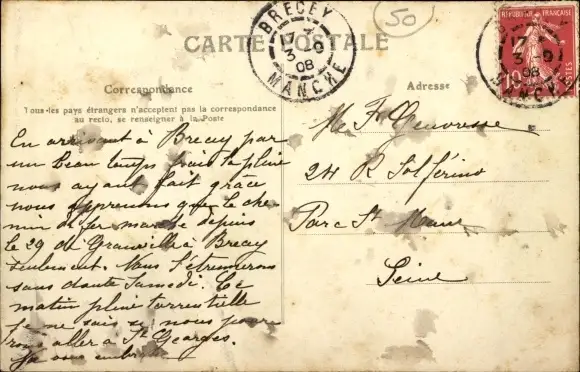 CARTE POSTALE
50
BRECEY
17 3
3 08
MANCHE
RÉPUBLIQUE FRANÇAISE
10
POSTES
17
3
08
MANCHE
Correspondance
Tous les pays étrangers n'acceptent pas la correspondance
au recto, se renseigner à la Poste
En arrivant à Brecey par
un beau temps frais la pluie
nous ayant fait grâce
nous apprenons que le che-
min de fer marche depuis
le 29 de Granville à Brecey
seulement. Nous l'étrennerons
sans doute Samedi. Ce
matin pluie torrentielle
je ne sais si nous pour-
rons aller à St Georges.
Je vous
Adresse
Me
24 R Solférino
Parc St Maur
Seine